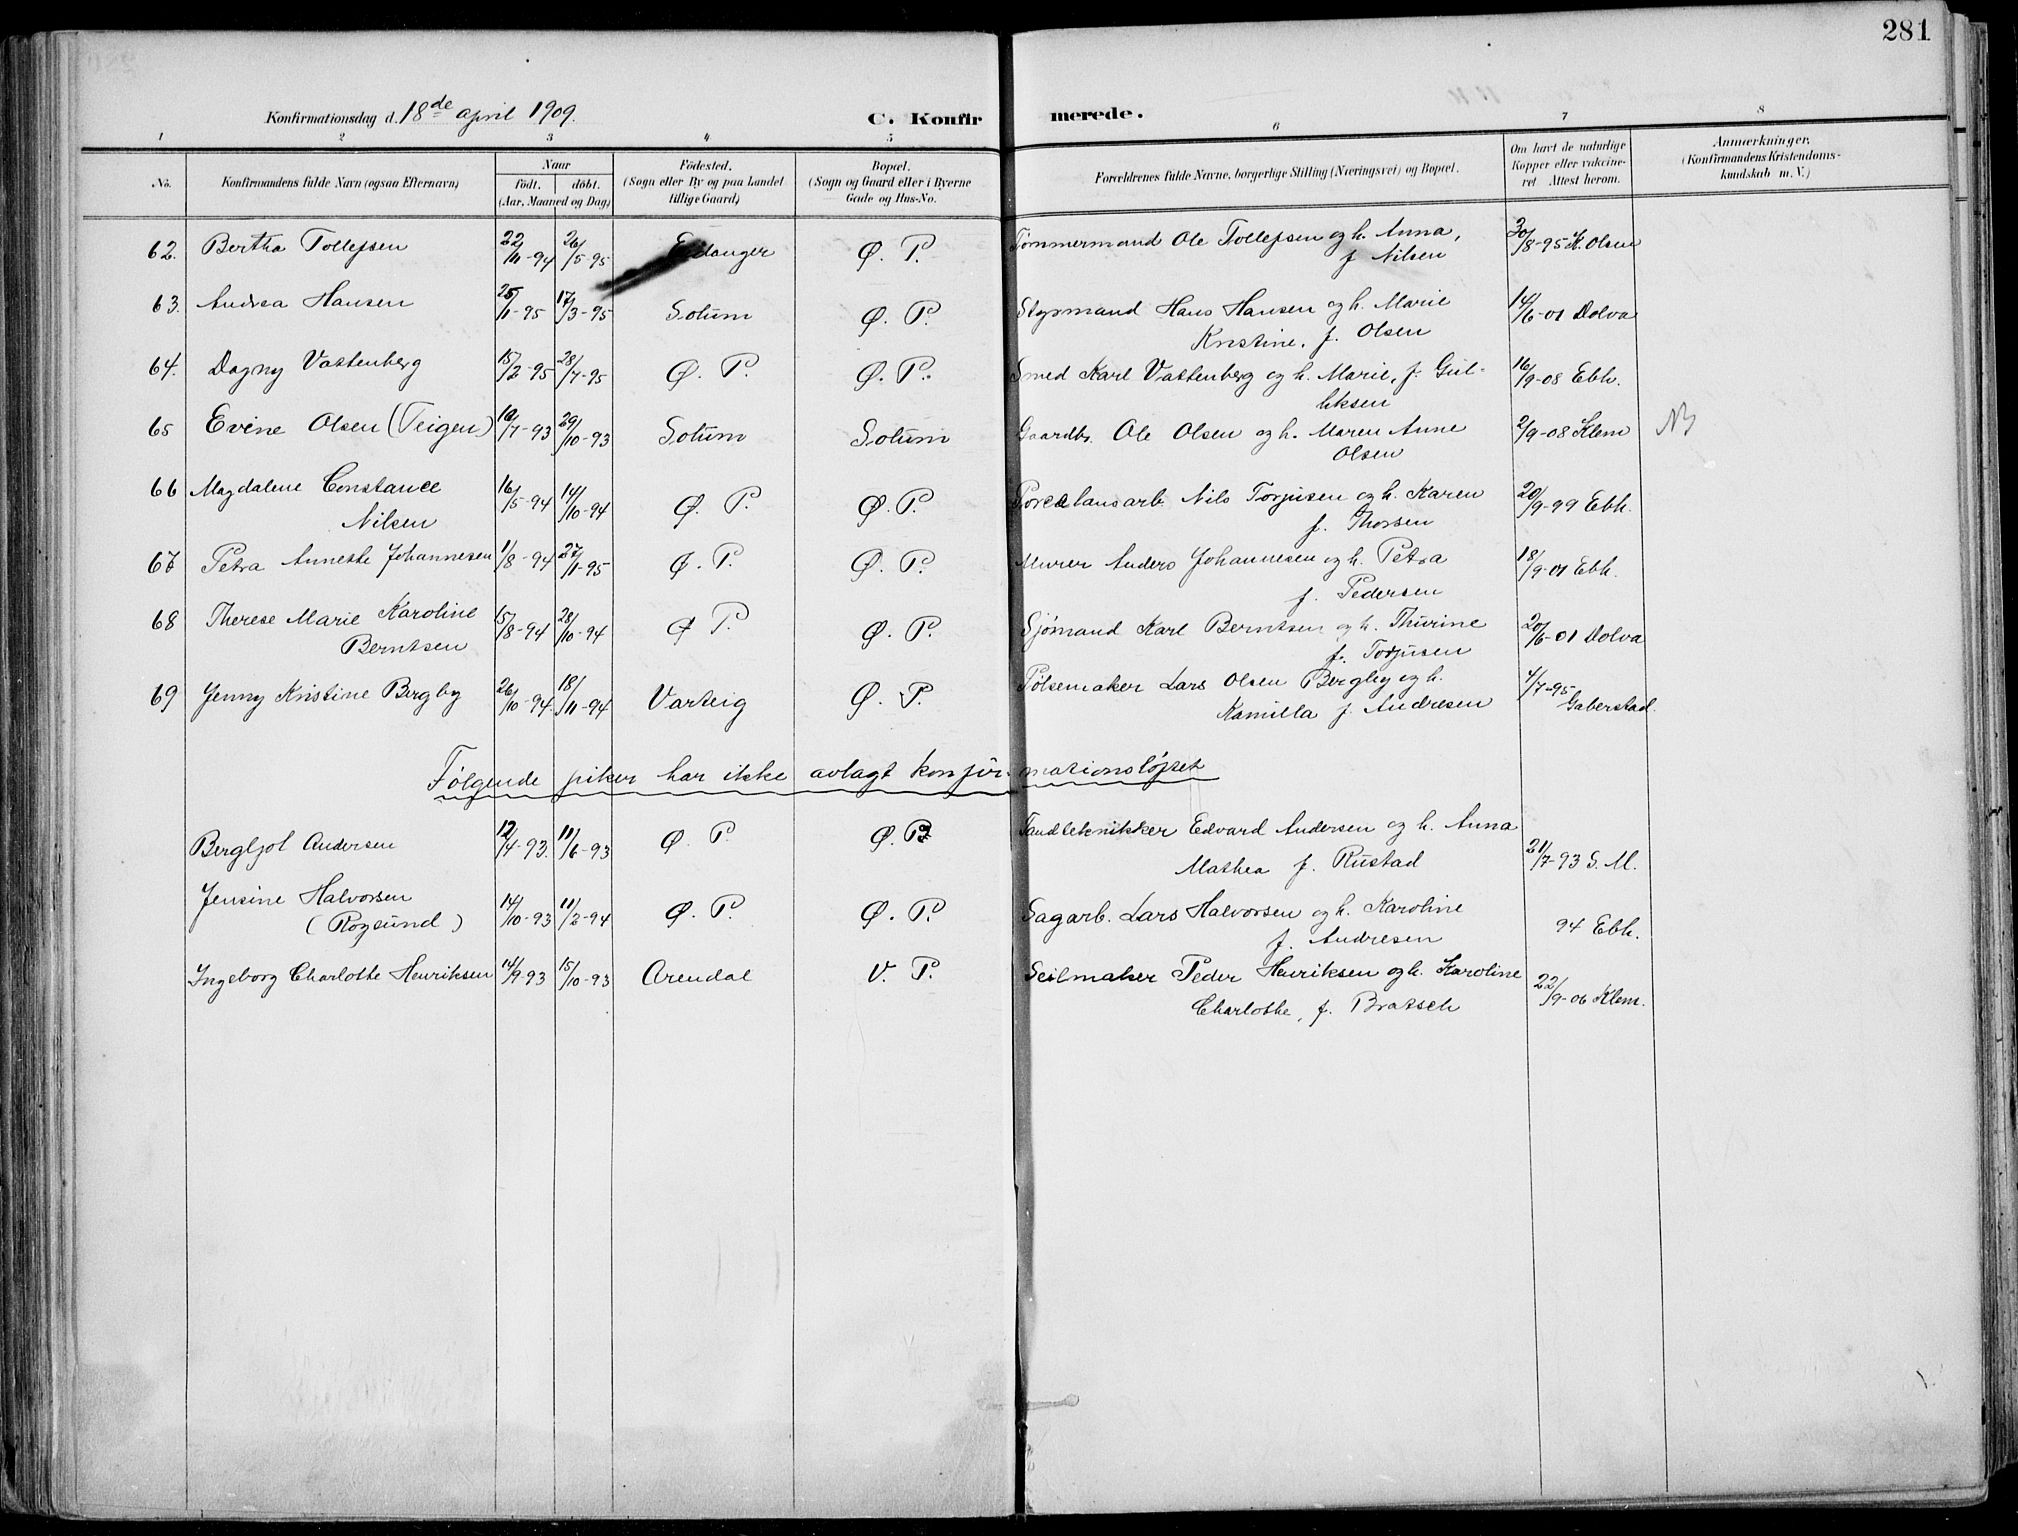 281
Konfirmationsdag d. 18de april 1909. C. Konfirmerede.
1 2 3 4 5 6 7 8
No. Konfirmandens fulde Navn (ogsaa Efternavn) Naar födt. döbt. (Aar, Maaned og Dag) Födested. (Sogn eller By og paa Landet tillige Gaard) Bopæl. (Sogn og Gaard eller i Byerne Gade og Hus-No. Forældrenes fulde Navne, borgerlige Stilling (Næringsvei) og Bopæl. Om havt de naturlige Kopper eller vakcineret Attest herom. Anmærkninger. (Konfirmandens Kristendomskundskab m. V.)
62. Bertha Tollefsen 22/11-94 26/5-95 Eidanger Ø. P. Tømmermand Ole Tollefsen og h. Anna, 30/8-95 K. Olsen
f Nilsen
63. Andrea Hansen 25/1-95 17/3-95 Solum Ø. P. Styrmand Hans Hansen og h. Marie 14/6-01 Dolva
Kristine, f. Olsen
64. Dagny Vattenberg 15/2-95 28/7-95 Ø. P. Ø. P. Smed Karl Vattenberg og h. Marie, f. Gul- 16/9-08 Ebh.
liksen
65 Evine Olsen (Teigen) 10/7-93 29/10-93 Solum Solum Gaardbr. Ole Olsen og h. Maren Anne 2/9-08 Klem NB
Olsen
66 Magdalene Constance 16/5-94 14/10-94 Ø. P. Ø. P. Porcelansarb. Nils Torjusen og h. Karen 20/9-99 Ebh.
Nilsen f. Thorsen
67 Petra Annette Johannesen 1/8-94 27/1-95 Ø. P. Ø. P. Murer Anders Johannesen og h. Petra 18/9-01 Ebh.
f. Pedersen
68 Therese Marie Karoline 15/8-94 28/10-94 Ø P. Ø. P. Sjømand Karl Berntsen og h. Thurine 20/6-01 Dolva
Berntsen f. Torjusen
69 Jenny Kristine Bergby 26/10-94. 18/11-94 Varteig Ø. P. Pølsemaker Lars Olsen Bergby og h. 4/7-95
Kamilla f. Andresen Gaberstad.
Følgende piker har ikke avlagt konfirmationsløftet
Bergljot Andersen 12/4-93. 11/6-93 Ø. P. Ø. P. Tandteknikker Edvard Andersen og h. Anna
Mathea f. Rustad 21/7-93 S. M.
Jensine Halvorsen 14/10-93 11/2-94 Ø. P. Ø. P. Sagarb. Lars Halvorsen og h. Karoline
(Rogsund) f. Andresen 94 Ebh.
Ingeborg Charlotte Henriksen 14/9-93 15/10-93 Arendal V. P. Seilmaker Peder Henriksen og h. Karoline
Charlotte, f. Bratsch 22/9-06 Klem.